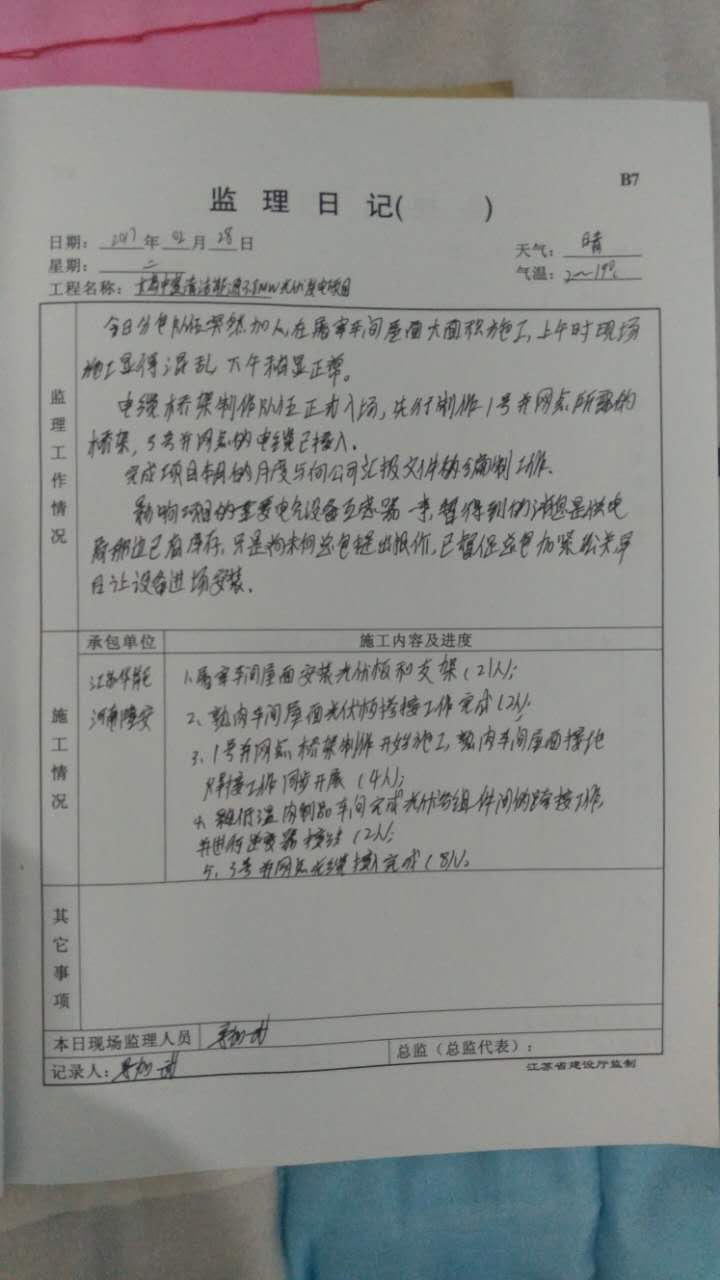 B7
监 理 日 记( )
日期: 2017 年 02 月 28 日
天气: 晴
星期: 二
气温: 2~19℃
工程名称: 清洁能源 光伏发电项目
监理工作情况
今日分包队伍突然加人,在屠宰车间屋面大面积施工,上午时现场
施工显得混乱,下午稍显正常。
电缆桥架制作队伍正式入场,先行制作1号并网点所需的
桥架,3号并网点的电缆已接入。
完成项目本月的月度与向公司汇报文件的编制工作.
影响项目的重要电气设备互感器一事,暂得到的消息是供电
局那边已有库存,只是尚未向总包提出报价,已督促总包加紧公关早
日让设备进场安装.
施工情况
承包单位
施工内容及进度
江苏华能
河南隆安
1.屠宰车间屋面安装光伏板和支架(21人);
2、熟肉车间屋面光伏板搭接工作完成(2人);
3、1号并网点桥架制作开始施工,熟肉车间屋面接地
焊接工作同步开展(4人);
4、低温肉制品车间完成光伏组件间的跨接工作,
并进行逆变器接线(2人);
5、3号并网点 完成(8人)。
其它事项
本日现场监理人员
总监(总监代表):
记录人:
江苏省建设厅监制